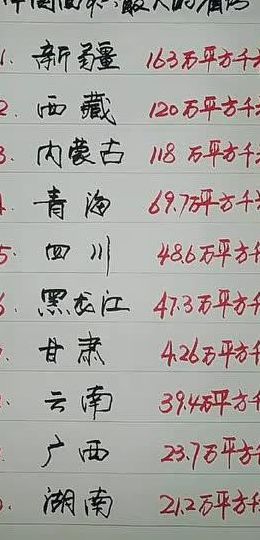 中国面积最大的省份
1. 新疆 163万平方千米
2. 西藏 120万平方千
3. 内蒙古 118万平方千
4. 青海 69.7万平方千
5. 四川 48.6万平方千
6. 黑龙江 47.3万平方千
7. 甘肃 4.26万平方千
8. 云南 39.4万平方千
9. 广西 23.7万平方千
10. 湖南 21.2万平方千